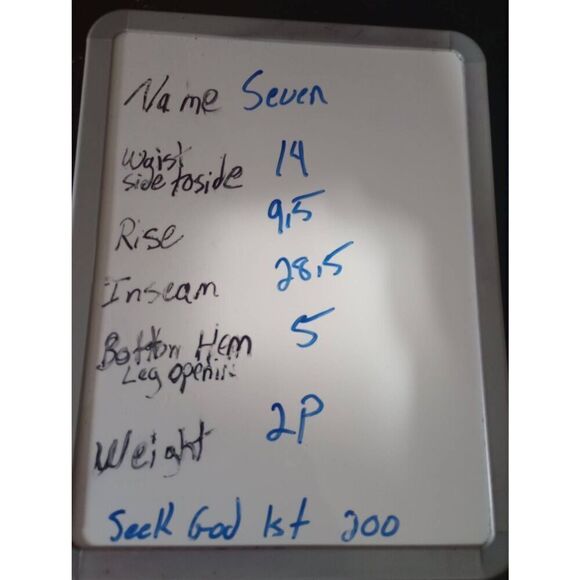 Name Seven
Waist 14
side to side
Rise 9.5
Inseam 28.5
Bottom Hem 5
Leg openin
Weight 2P
Seek God 1st 200